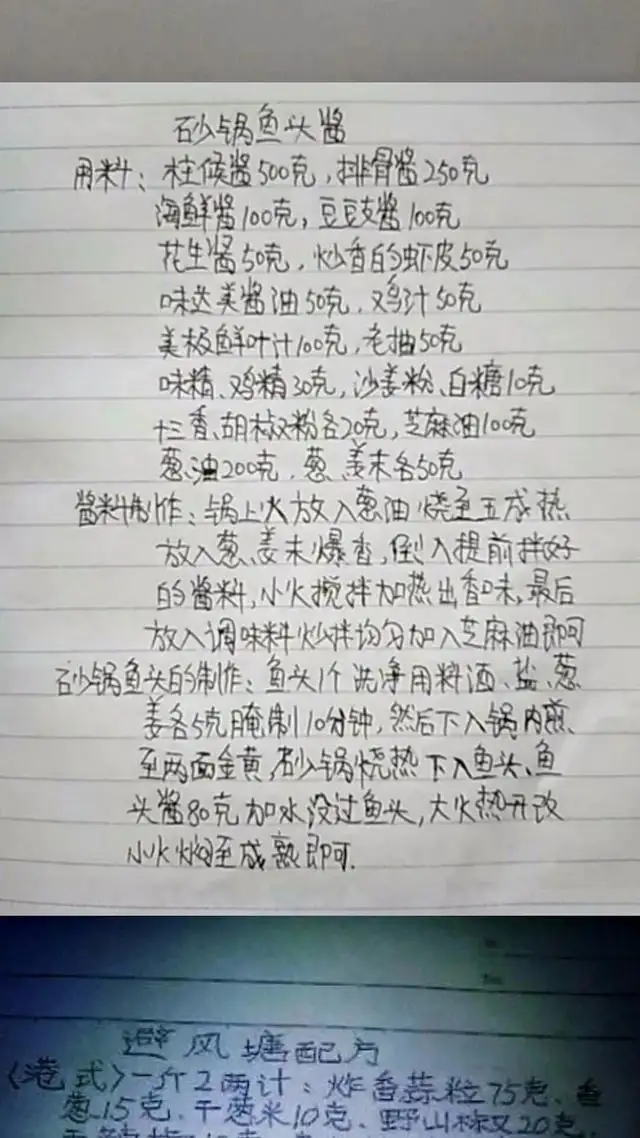 砂锅鱼头酱
用料：柱候酱500克，排骨酱250克
海鲜酱100克，豆豉酱100克
花生酱50克，炒香的虾皮50克
味达美酱油50克，鸡汁50克
美极鲜叶汁100克，老抽50克
味精、鸡精30克，沙姜粉、白糖10克
十三香、胡椒粉各20克，芝麻油100克
葱油200克，葱、姜末各50克
酱料制作：锅上火放入葱油烧至五成热
放入葱、姜末爆香，倒入提前拌好
的酱料，小火搅拌加热出香味，最后
放入调味料炒拌均匀加入芝麻油即可
砂锅鱼头的制作：鱼头1个洗净用料酒、盐、葱
姜各5克腌制10分钟，然后下入锅内煎
至两面金黄，砂锅烧热下入鱼头、鱼
头酱80克加水没过鱼头，大火热开改
小火焖至成熟即可.
避风塘配方
〈港式〉一斤2两计：炸香蒜粒75克、香
葱15克、干葱米10克、野山椒20克